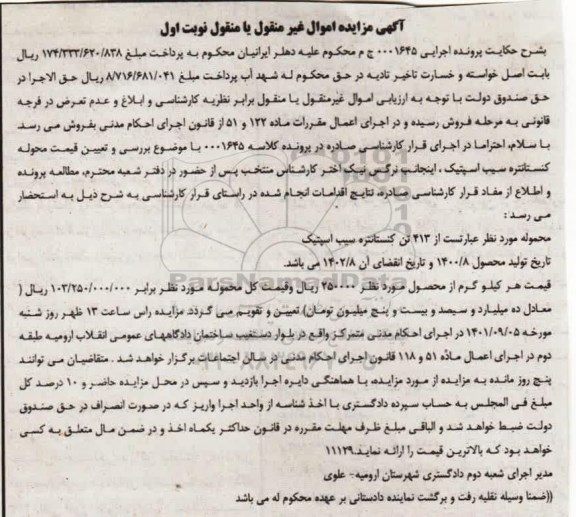 آگهی مزایده اموال غیر منقول یا منقول نوبت اول
بشرح حکایت پرونده اجرایی ۰۰۰۱۶۴۵ ج م محکوم علیه دهلر ایرانیان محکوم به پرداخت مبلغ ۱۷۴/۳۳۳/۶۲۰/۸۳۸ ریال
بابت اصل خواسته و خسارت تاخیر تادیه در حق محکوم له شهد آب پرداخت مبلغ ۸/۷۱۶/۶۸۱/۰۴۱ ریال حق الاجرا در
حق صندوق دولت با توجه به ارزیابی اموال غیرمنقول یا منقول برابر نظریه کارشناسی و ابلاغ و عدم تعرض در فرجه
قانونی به مرحله فروش رسیده و در اجرای اعمال مقررات ماده ۱۲۲ و ۵۱ از قانون اجرای احکام مدنی بفروش می رسد
با سلام، احتراما در اجرای قرار کارشناسی صادره در پرونده کلاسه ۰۰۰۱۶۴۵ با موضوع بررسی و تعیین قیمت محوله
کنستانتره سیب اسپتیک ، اینجانب نرگس نیک اختر کارشناس منتخب پس از حضور در دفتر شعبه محترم، مطالعه پرونده
و اطلاع از مفاد قرار کارشناسی صادره، نتایج اقدامات انجام شده در راستای قرار کارشناسی به شرح ذیل به استحضار
می رسد :
محموله مورد نظر عبارتست از ۴۱۳ تن کنستانتره سیب اسپتیک
تاریخ تولید محصول ۱۴۰۰/۸ و تاریخ انقضای آن ۱۴۰۲/۸ می باشد.
قیمت هر کیلو گرم از محصول مورد نظر ۲۵۰۰۰۰ ریال وقیمت کل محموله مورد نظر برابر ۱۰۳/۲۵۰/۰۰۰/۰۰۰ ریال (
معادل ده میلیارد و سیصد و بیست و پنج میلیون تومان) تعیین و تقویم می گردد. مزایده راس ساعت ۱۲ ظهر روز شنبه
مورخه ۱۴۰۱/۰۹/۰۵ در اجرای احکام مدنی متمرکز واقع در بلوار دستغیب ساختمان دادگاههای عمومی انقلاب ارومیه طبقه
دوم در اجرای اعمال ماده ۵۱ و ۱۱۸ قانون اجرای احکام مدنی در سالن اجتماعات برگزار خواهد شد . متقاضیان می توانند
پنج روز مانده به مزایده از مورد مزایده، با هماهنگی دایره اجرا بازدید و سپس در محل مزایده حاضر و ۱۰ درصد کل
مبلغ فی المجلس به حساب سپرده دادگستری با اخذ شناسه از واحد اجرا واریز که در صورت انصراف در حق صندوق
دولت ضبط خواهد شد و الباقی مبلغ ظرف مهلت مقرره در قانون حداکثر یکماه اخذ و در ضمن مال متعلق به کسی
خواهد بود که بالاترین قیمت را ارائه نماید.۱۱۱۲۹
مدیر اجرای شعبه دوم دادگستری شهرستان ارومیه- علوی
((ضمنا وسیله نقلیه رفت و برگشت نماینده دادستانی بر عهده محکوم له می باشد
ParsNamadData